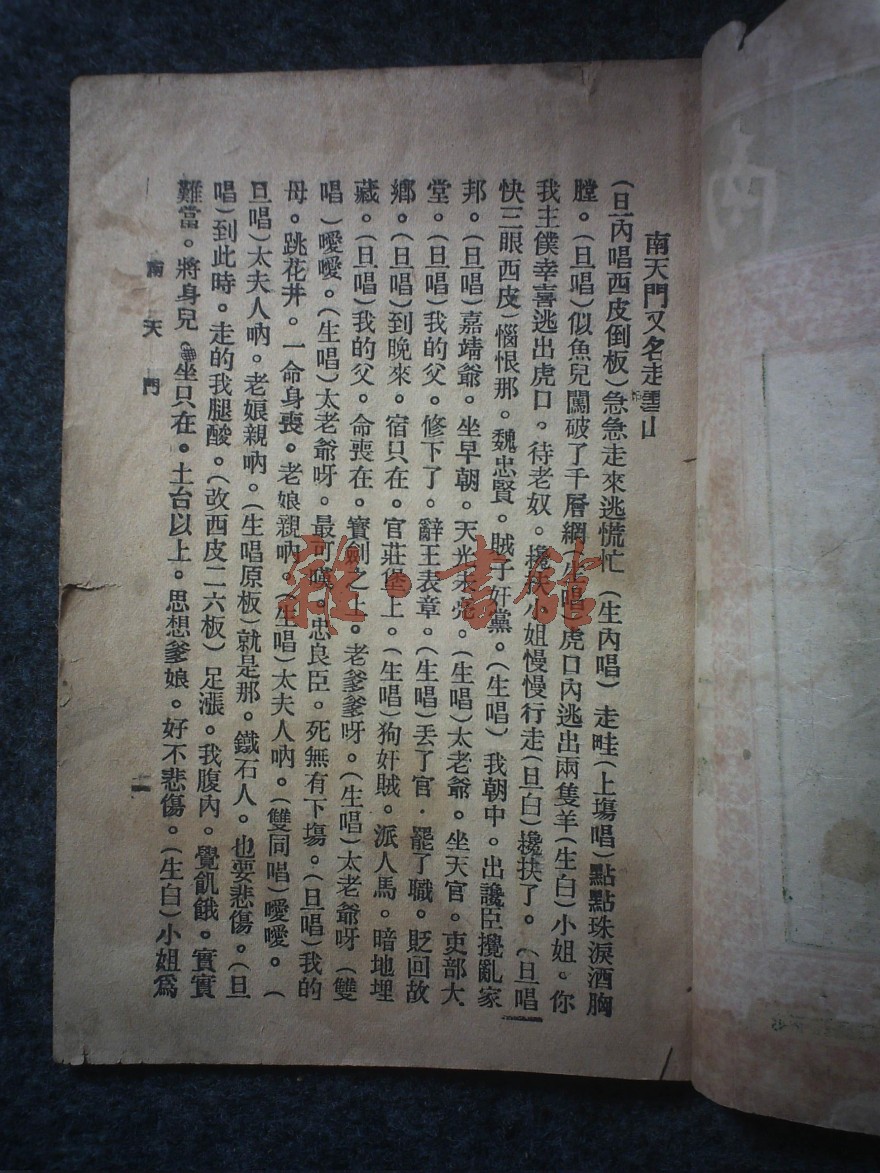 南天門又名走雪山
(旦內唱西皮倒板)急急走來逃慌忙 (生內唱) 走哇(上塲唱)點點珠淚洒胸
膛。(旦唱)似魚兒闖破了千層網(生唱)虎口內逃出兩隻羊(生白)小姐。你
我主僕幸喜逃出虎口。待老奴。攙扶小姐慢慢行走(旦白)攙扶了。(旦唱
快三眼西皮)惱恨那。魏忠賢。賊子奸黨。(生唱) 我朝中。出讒臣攪亂家
邦。(旦唱)嘉靖爺。坐早朝。天光未亮。(生唱)太老爺。坐天官。吏部大
堂。(旦唱)我的父。修下了。辭王表章。(生唱)丟了官．罷了職。貶回故
鄉。(旦唱)到晚來。宿只在。官莊堡上。(生唱)狗奸賊。派人馬。暗地埋
藏。(旦唱)我的父。命喪在。寶劍之上。老爹爹呀。(生唱)太老爺呀(雙
唱)噯噯。(生唱)太老爺呀。最可嘆。忠良臣。死無有下塲。(旦唱)我的
母。跳花井。一命身喪。老娘親吶。(生唱)太夫人吶。(雙同唱)噯噯。(
旦唱)太夫人吶。老娘親吶。(生唱原板)就是那。鐵石人。也要悲傷。(旦
唱)到此時。走的我腿酸。(改西皮二六板) 足漲。我腹內。覺飢餓。實實
難當。將身兒。坐只在。土台以上。思想爹娘。好不悲傷。(生白)小姐爲
南天門
一
雜·書館